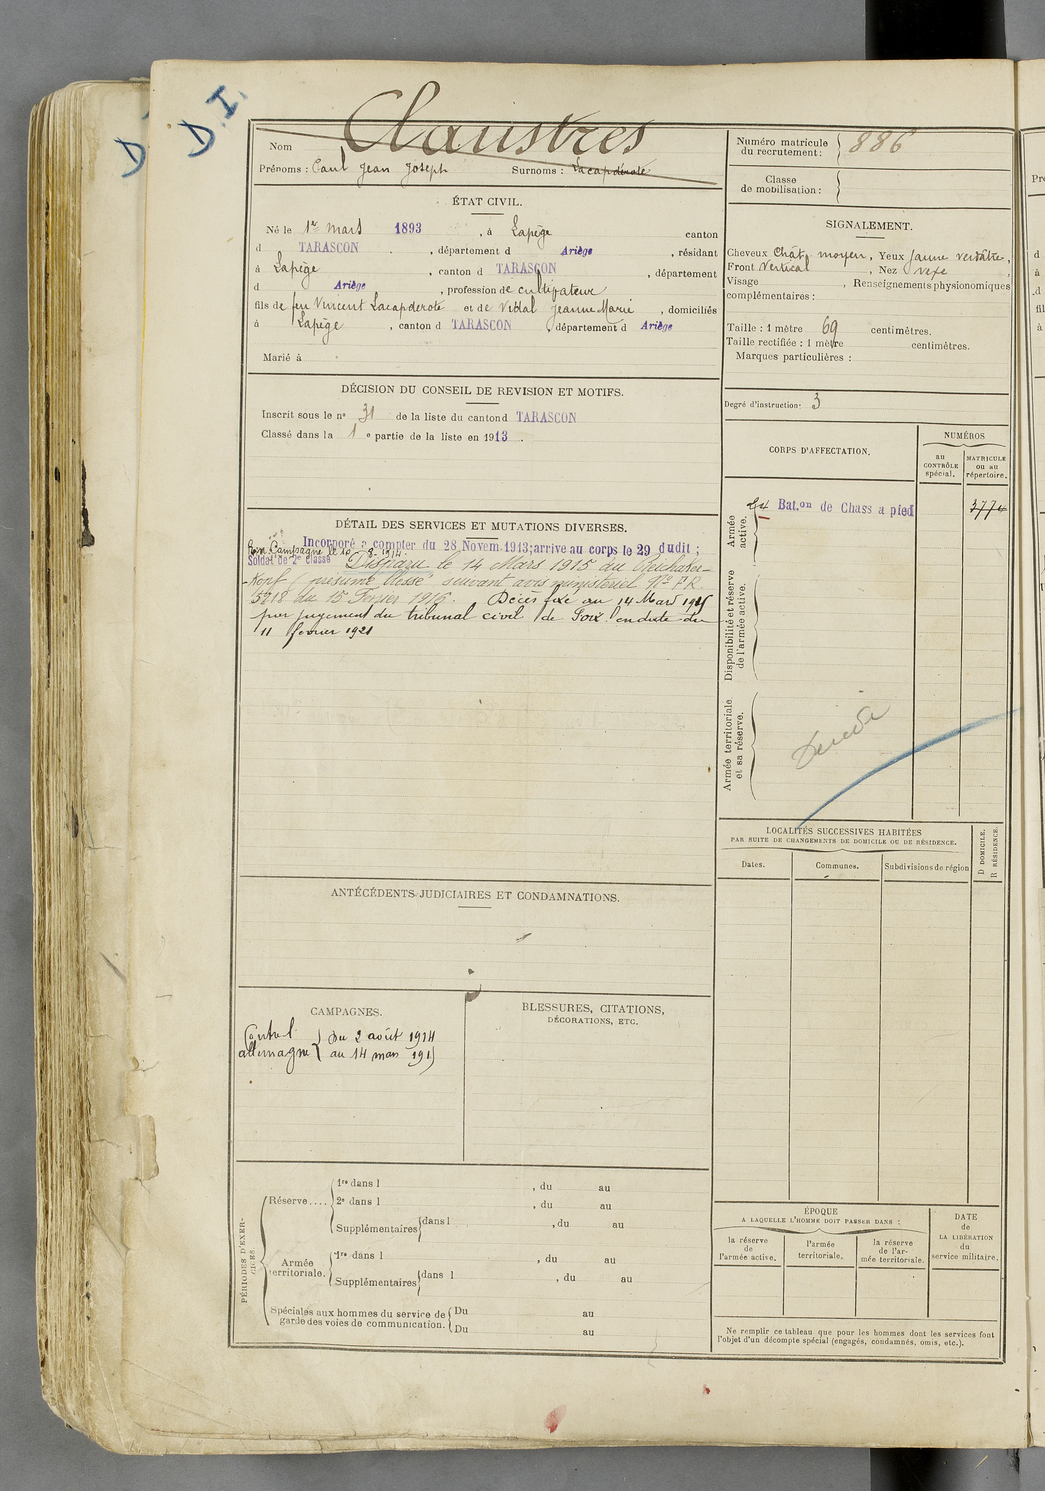 D.I.
D
Nom Claustres
Prénoms : Paul Jean Joseph Surnoms : Lacapdérote
Numéro matricule du recrutement : 886
Classe de mobilisation :
ÉTAT CIVIL.
Né le 1er mars 1893, à Lapège canton
d TARASCON, département d Ariège, résidant
à Lapège, canton d TARASCON, département
d Ariège, profession de cultipateur
fils de feu Vincent Lacapderote et de Vidal Jeanne Marie, domiciliés
à Lapège, canton d TARASCON, département d Ariège
Marié à
SIGNALEMENT.
Cheveux Chât. moyen, Yeux jaune verdâtre,
Front Vertical, Nez vexe,
Visage, Renseignements physionomiques
complémentaires :
Taille : 1 mètre 69 centimètres.
Taille rectifiée : 1 mètre centimètres.
Marques particulières :
DÉCISION DU CONSEIL DE REVISION ET MOTIFS.
Inscrit sous le no 31 de la liste du canton d TARASCON
Classé dans la 1 e partie de la liste en 1913.
Degré d'instruction: 3
CORPS D'AFFECTATION.
NUMÉROS
au CONTRÔLE spécial.
MATRICULE ou au répertoire.
Armée active.
24 Bat.on de Chass a pied 3774
Disponibilité et réserve de l'armée active.
Armée territoriale et sa réserve.
DÉTAIL DES SERVICES ET MUTATIONS DIVERSES.
Incorporé a compter du 28 Novem. 1913; arrive au corps le 29 dudit ;
Campagne le 10 8 1914.
Soldat de 2e classe Disparu le 14 Mars 1915 au Reichaker-
-Kopf (présumé blessé) suivant avis ministériel No F.R
5218 du 15 Fevrier 1916. Décès fixé au 14 Mars 1915
par jugement du tribunal civil de Foix en date du
11 fevrier 1921
LOCALITÉS SUCCESSIVES HABITÉES
PAR SUITE DE CHANGEMENTS DE DOMICILE OU DE RÉSIDENCE.
D DOMICILE.
R RÉSIDENCE.
Dates. Communes. Subdivisions de région
ANTÉCÉDENTS JUDICIAIRES ET CONDAMNATIONS.
CAMPAGNES.
Contre l } Du 2 août 1914
allemagne } au 14 mars 1915
BLESSURES, CITATIONS,
DÉCORATIONS, ETC.
PÉRIODES D'EXERCICES.
Réserve....
1re dans l , du au
2e dans l , du au
Supplémentaires dans l , du au
Armée territoriale.
1re dans l , du au
Supplémentaires dans l , du au
Spéciales aux hommes du service de garde des voies de communication.
Du au
Du au
ÉPOQUE
A LAQUELLE L'HOMME DOIT PASSER DANS :
la réserve de l'armée active.
l'armée territoriale.
la réserve de l'armée territoriale.
DATE de LA LIBÉRATION du service militaire.
Ne remplir ce tableau que pour les hommes dont les services font
l'objet d'un décompte spécial (engagés, condamnés, omis, etc.).